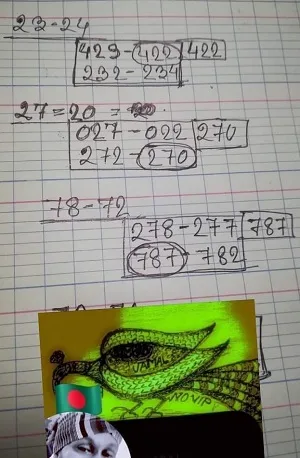 23-24
423-422 422
232-234
27=20 =
027-022 270
272-270
78-72
278-277 787
787-782
JAMAL
NOVIP